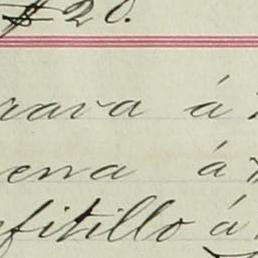 $20.
rava á
ena á
nfitillo á